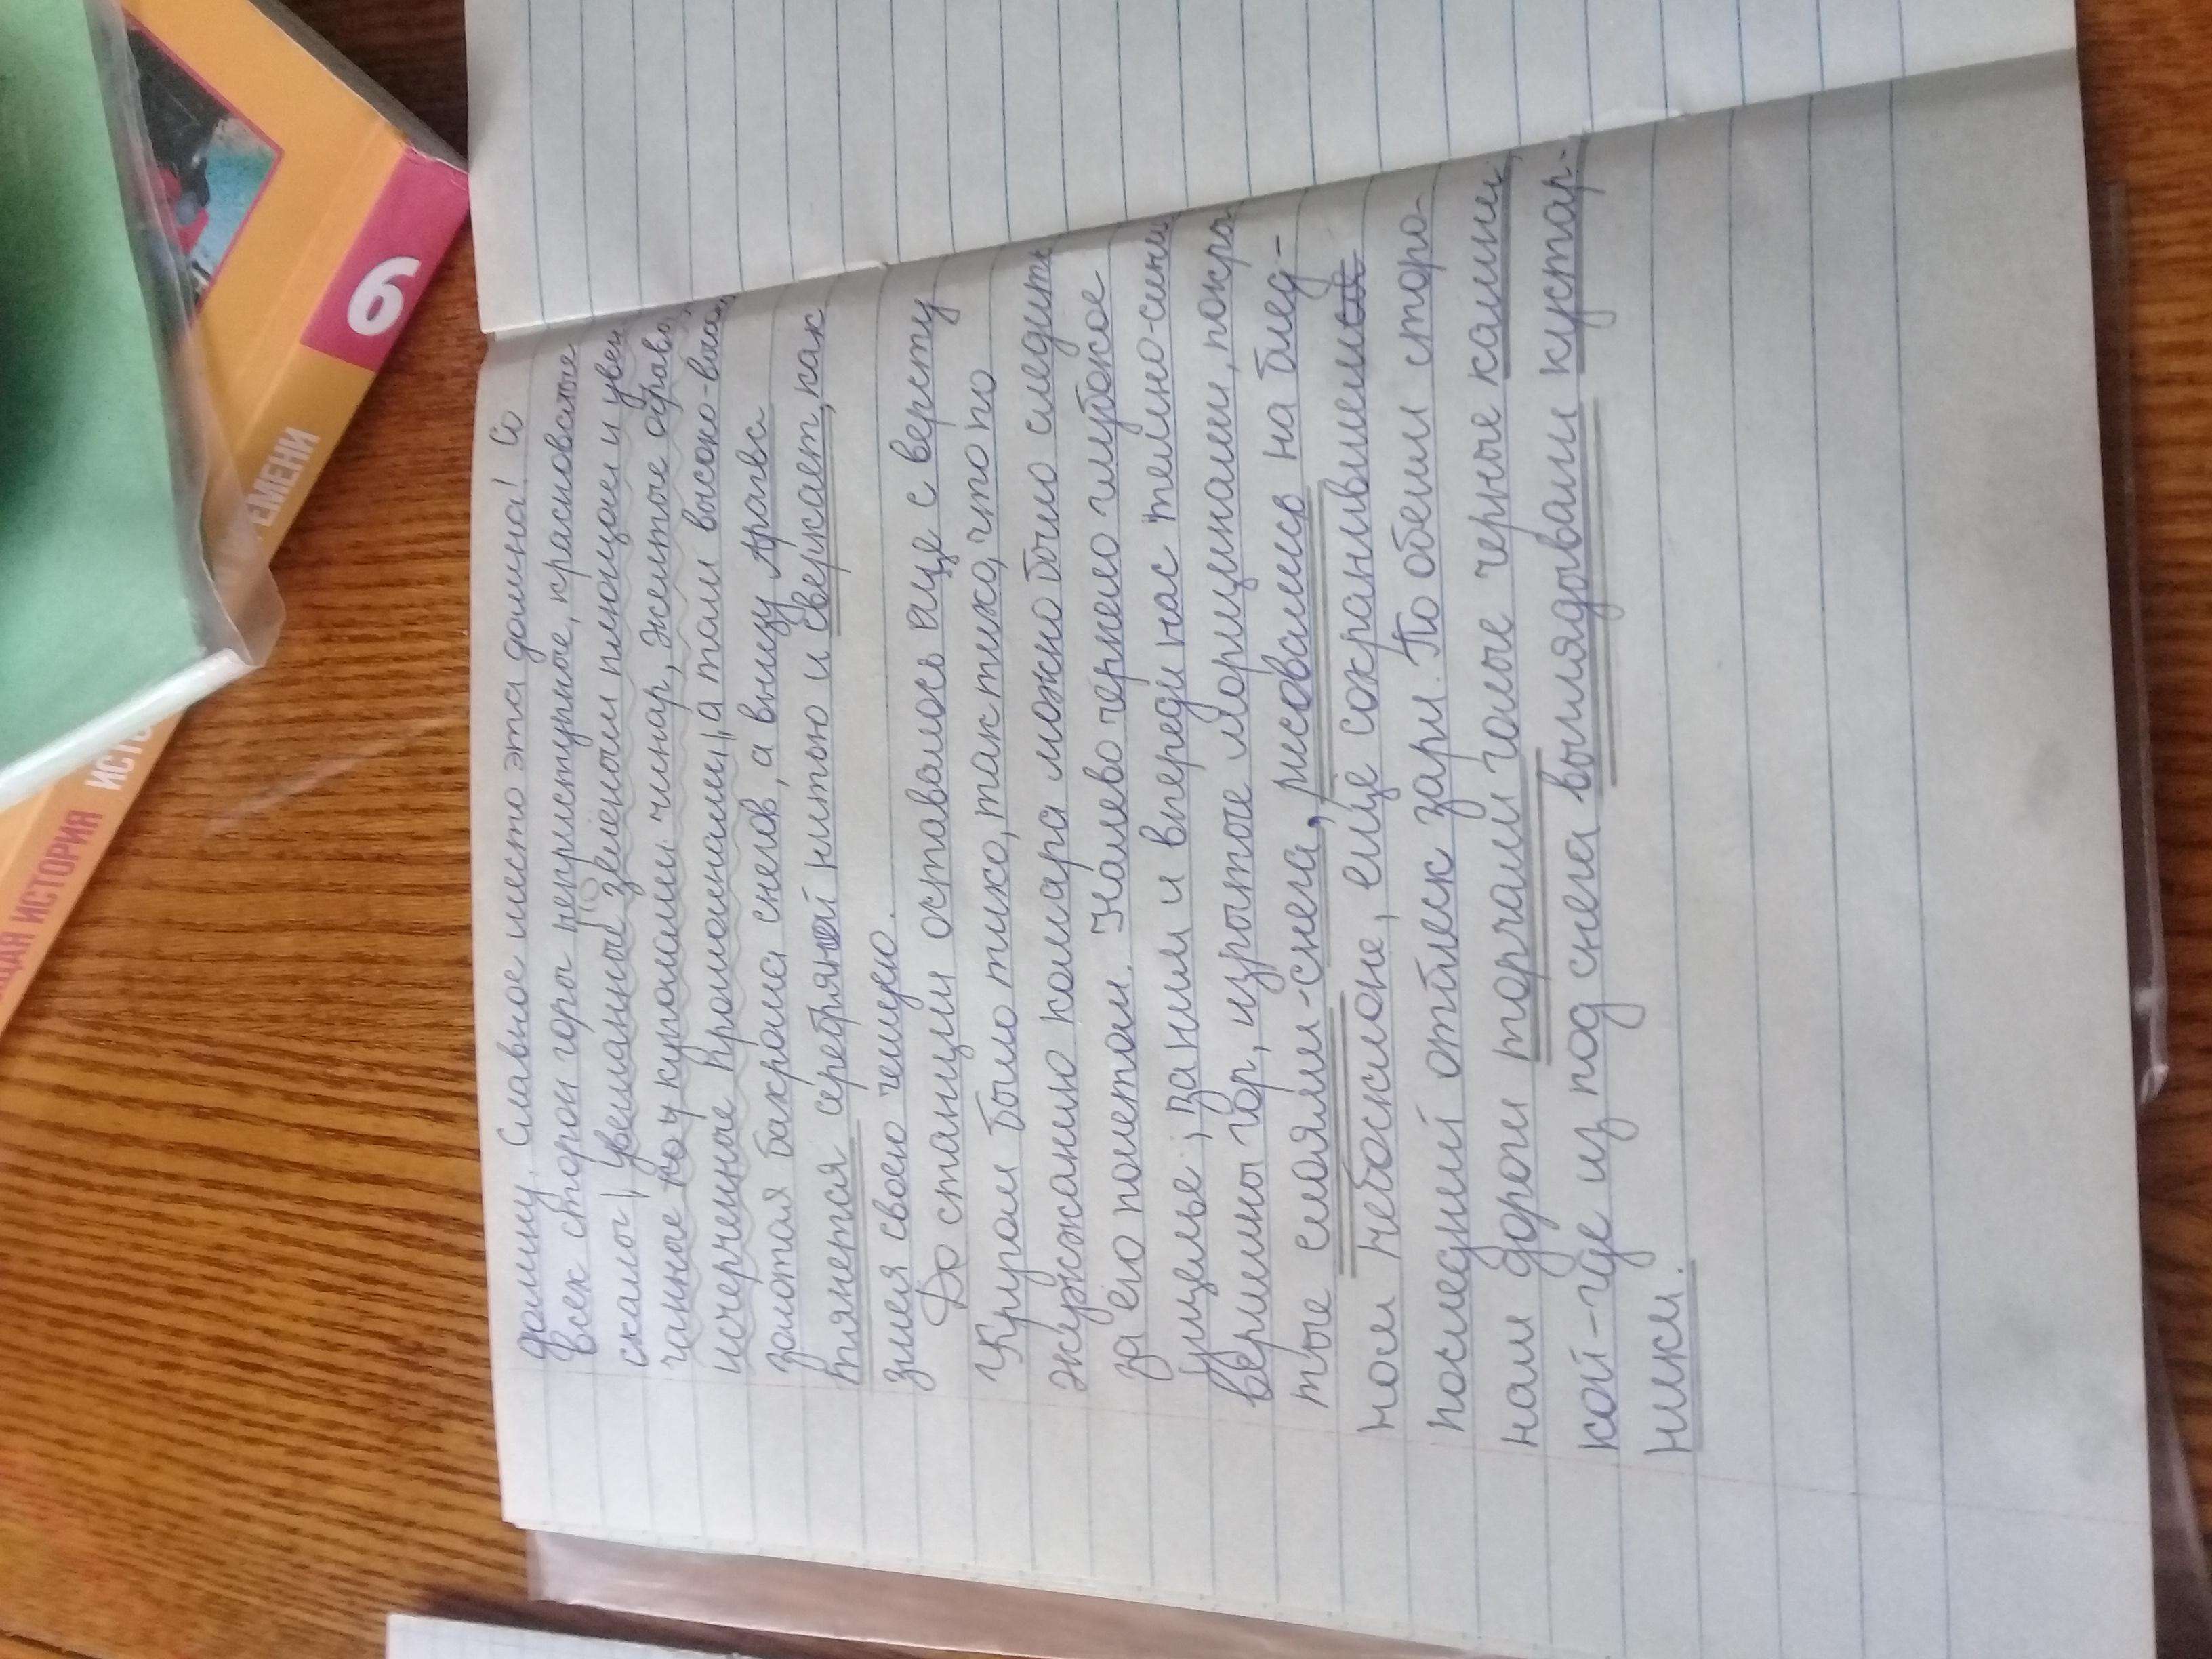 долину. Славное место эта долина! Со
всех сторон горы неприступные, красноватые
скалы, увешанные зеленым плющом и увен
чанные купами чинар, желтые обрывы,
исчерченные промоинами, а там высоко-высоко
золотая бахрома снегов, а внизу Арагва
тянется серебряной нитью и сверкает, как
змея своею чешуею.
До станции оставалось еще с версту
Кругом было тихо, так тихо, что по
жужжанию комара можно было следить
за его полетом. Налево чернело глубокое
ущелье; за ним и впереди нас темно-синие
вершины гор, изрытые морщинами, покры
тые слоями снега, рисовались на блед-
ном небосклоне, еще сохранившем
последний отблеск зари. По обеим сторо-
нам дороги торчали голые черные камни
кой-где из под снега выглядывали кустар-
ники.
6
ЕМЕНИ
ЩАЯ ИСТОРИЯ
ИСТО